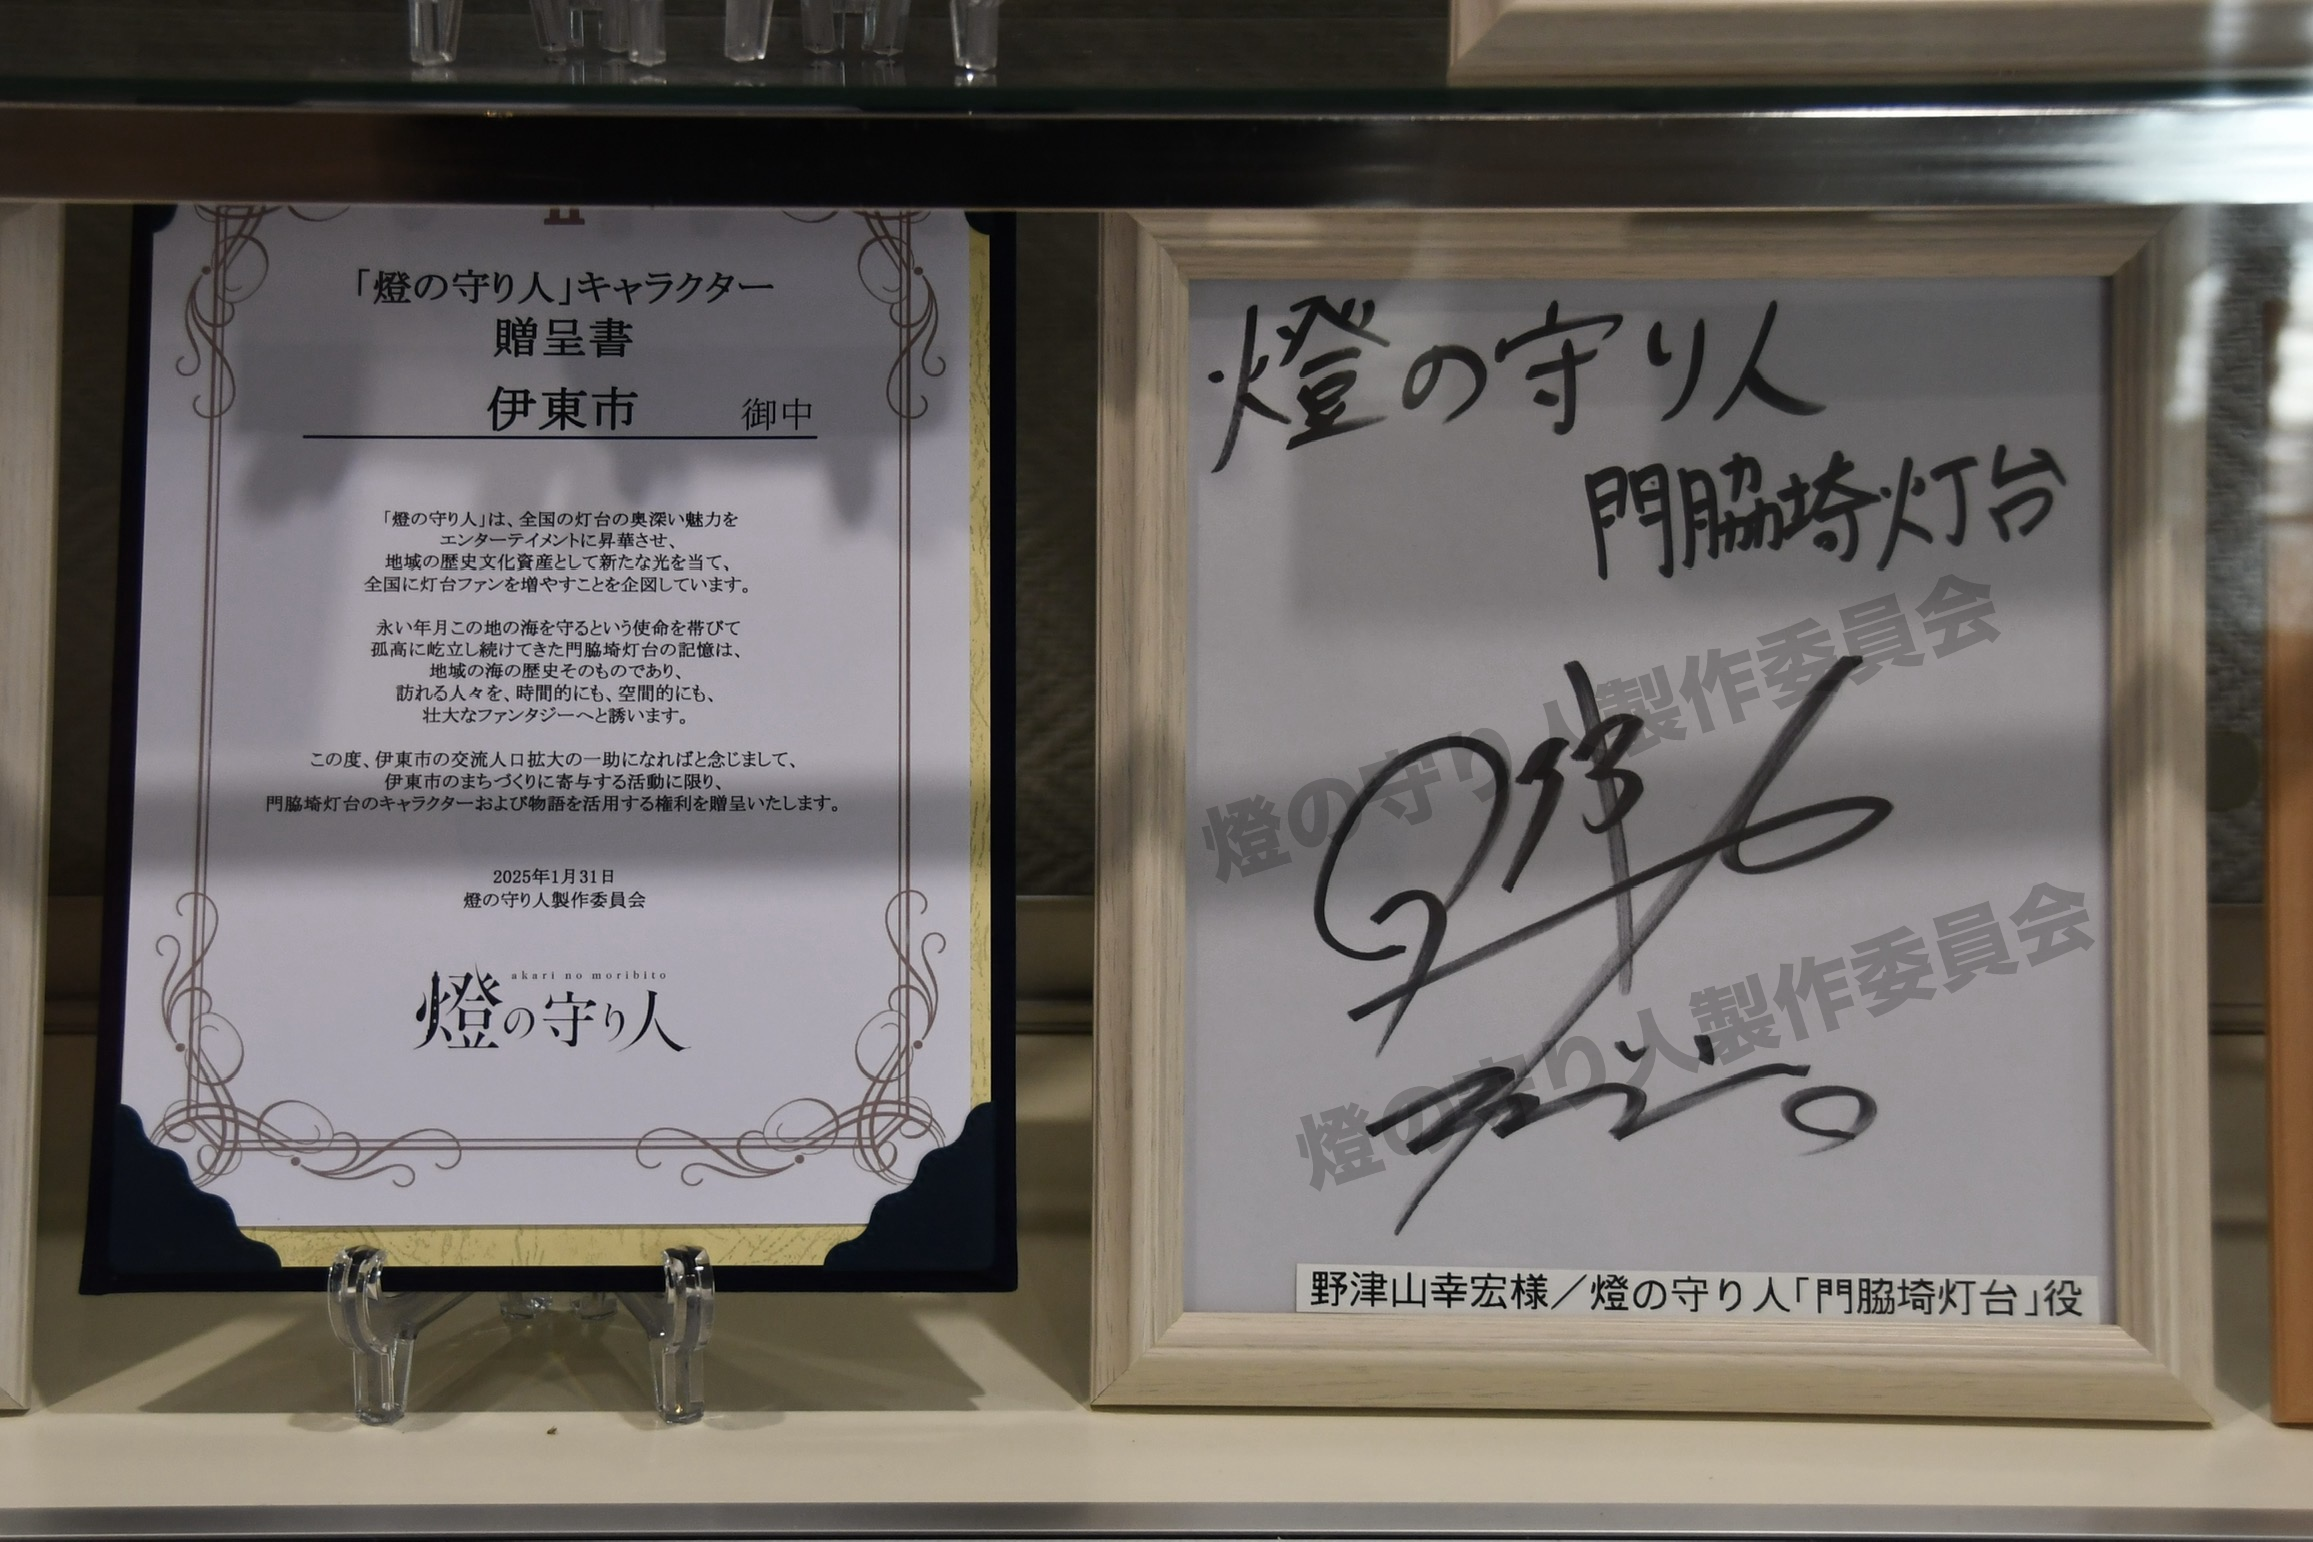 「燈の守り人」キャラクター
贈呈書
伊東市 御中
「燈の守り人」は、全国の灯台の奥深い魅力を
エンターテイメントに昇華させ、
地域の歴史文化資産として新たな光を当て、
全国に灯台ファンを増やすことを企図しています。
永い年月この地の海を守るという使命を帯びて
孤高に屹立し続けてきた門脇埼灯台の記憶は、
地域の海の歴史そのものであり、
訪れる人々を、時間的にも、空間的にも、
壮大なファンタジーへと誘います。
この度、伊東市の交流人口拡大の一助になればと念じまして、
伊東市のまちづくりに寄与する活動に限り、
門脇埼灯台のキャラクターおよび物語を活用する権利を贈呈いたします。
2025年1月31日
燈の守り人製作委員会
akari no moribito
燈の守り人
燈の守り人
門脇埼灯台
燈の守り人製作委員会
燈の守り人製作委員会
野津山幸宏様／燈の守り人「門脇埼灯台」役